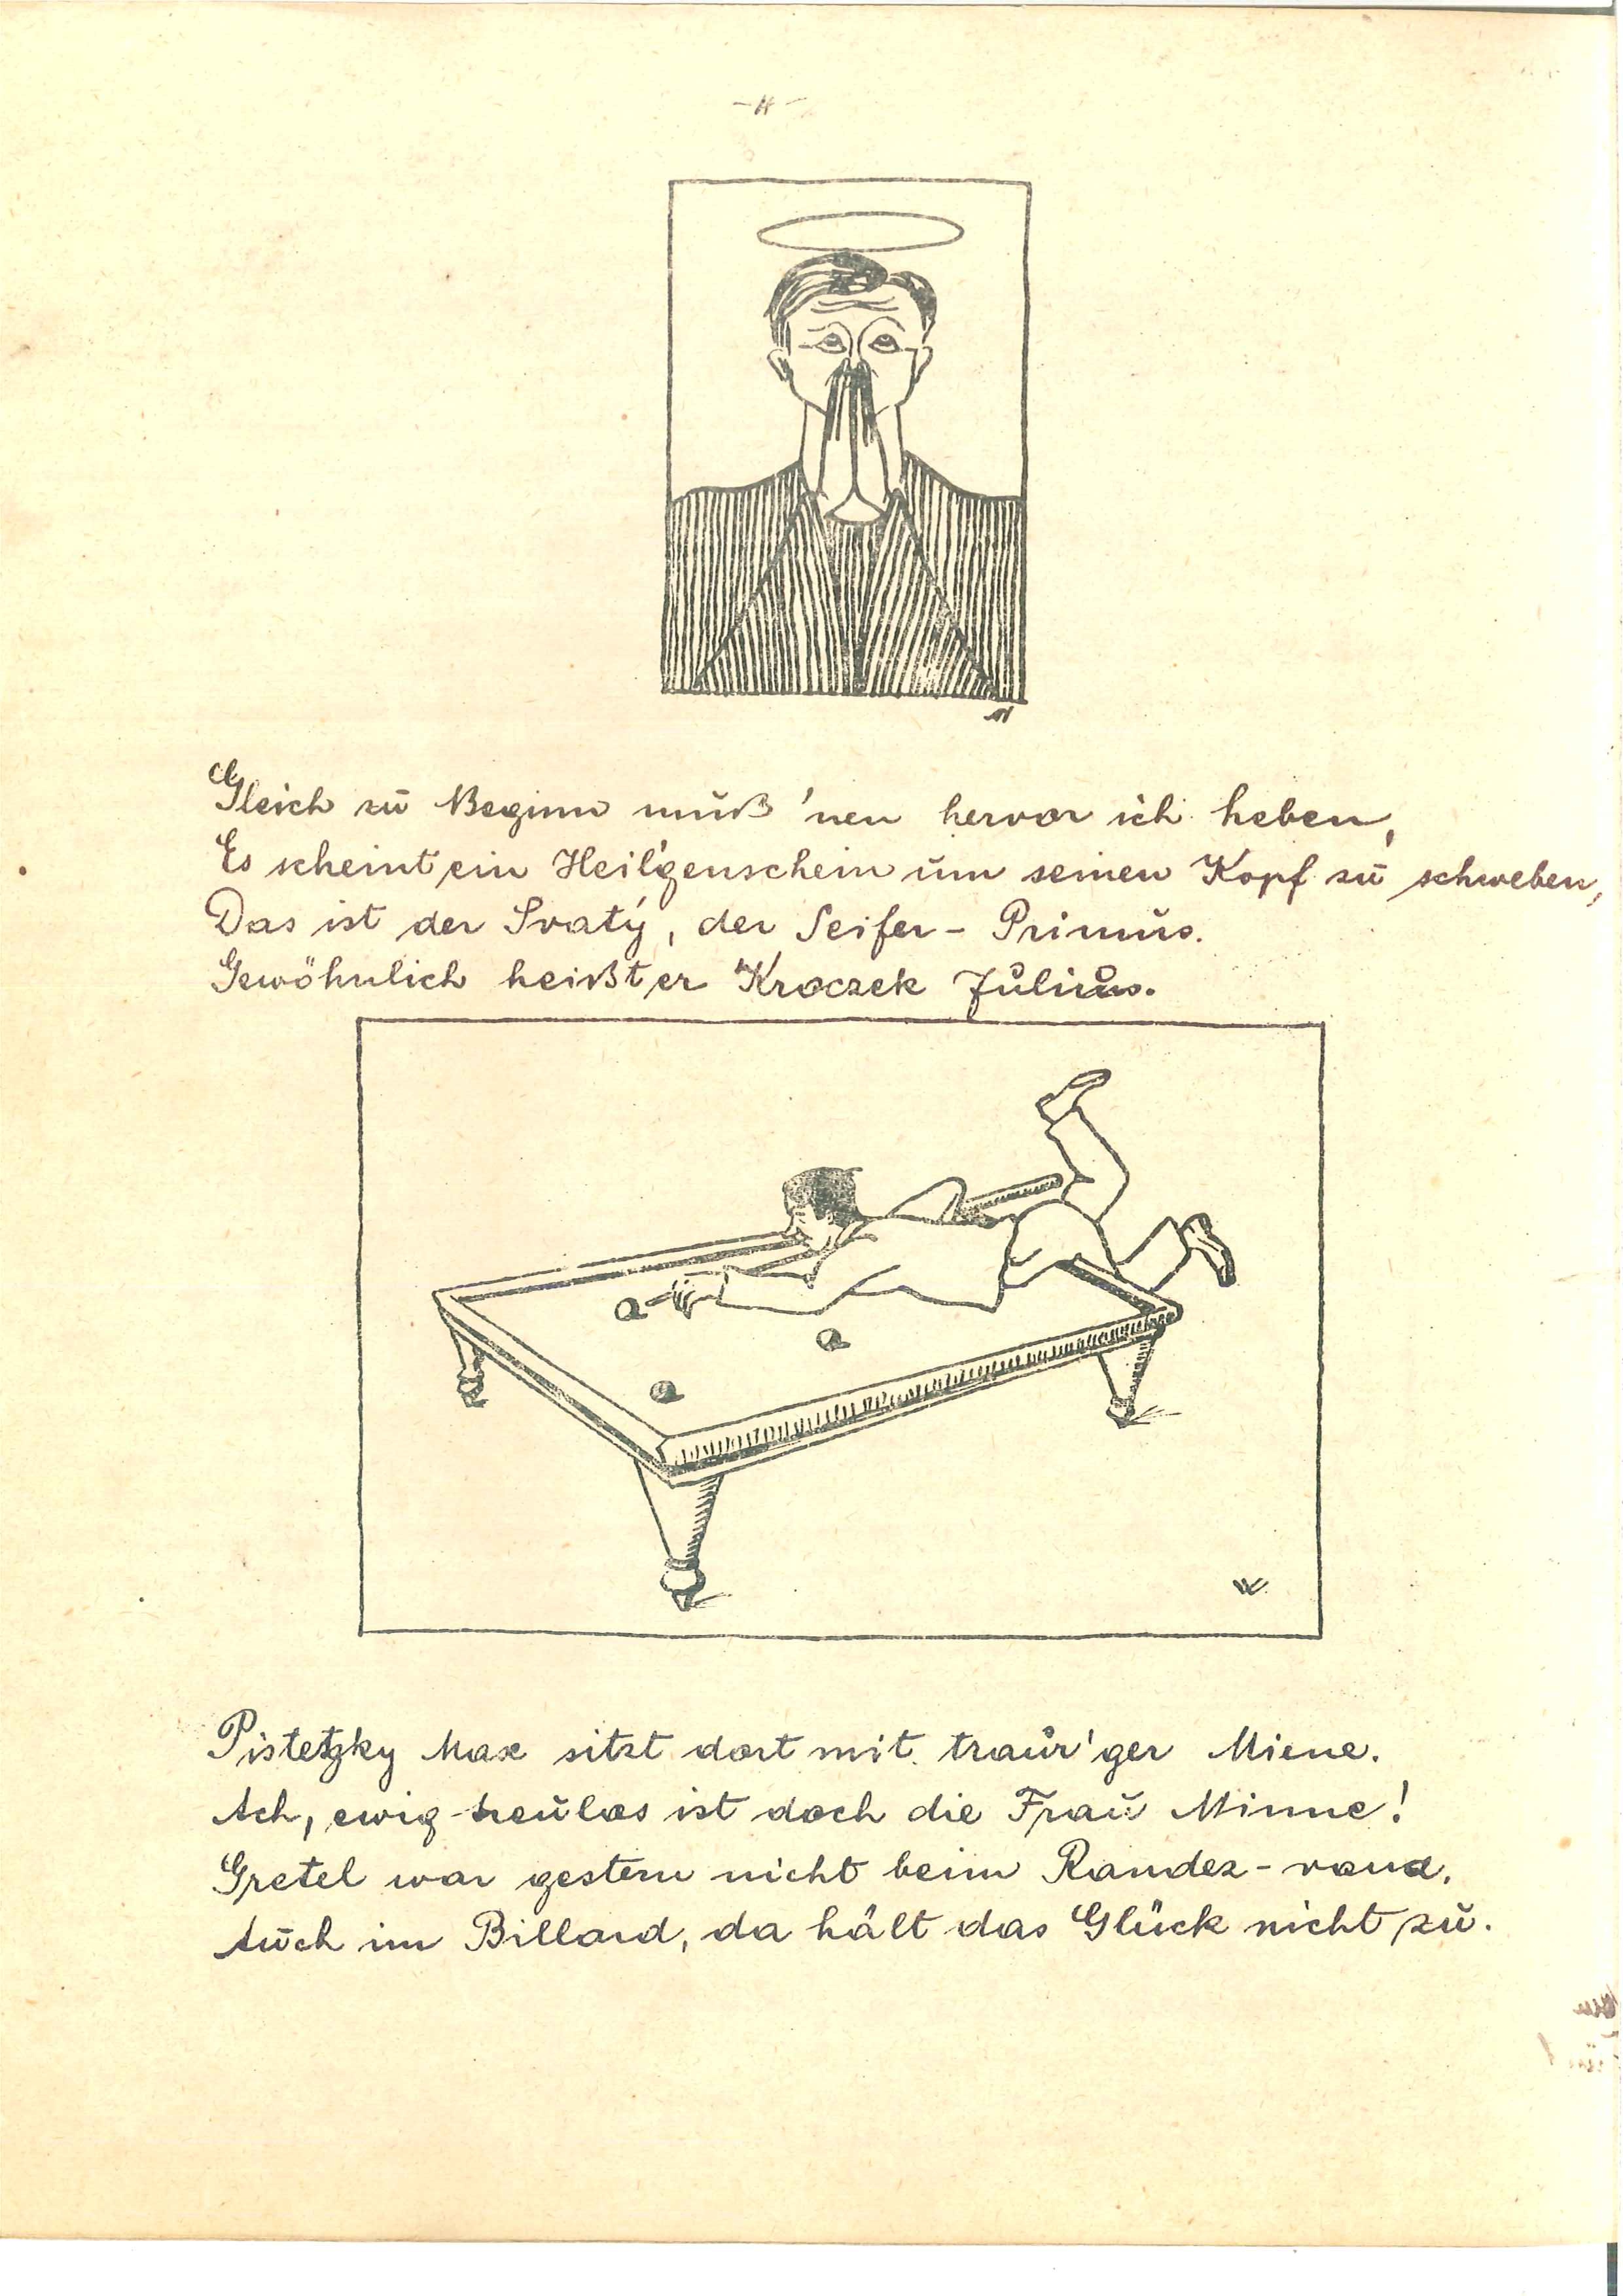 Gleich zu Beginn muß 'nen hervor ich heben,
Es scheint ein Heil'genschein um seinen Kopf zu schweben,
Das ist der Svatý, der Seifer-Primus.
Gewöhnlich heißt er Kroczek Julius.
W
Pistetzky Max sitzt dort mit traur'ger Miene.
Ach, ewig treulos ist doch die Frau Minne!
Gretel war gestern nicht beim Randez-vous,
Auch im Billard, da hält das Glück nicht zu.